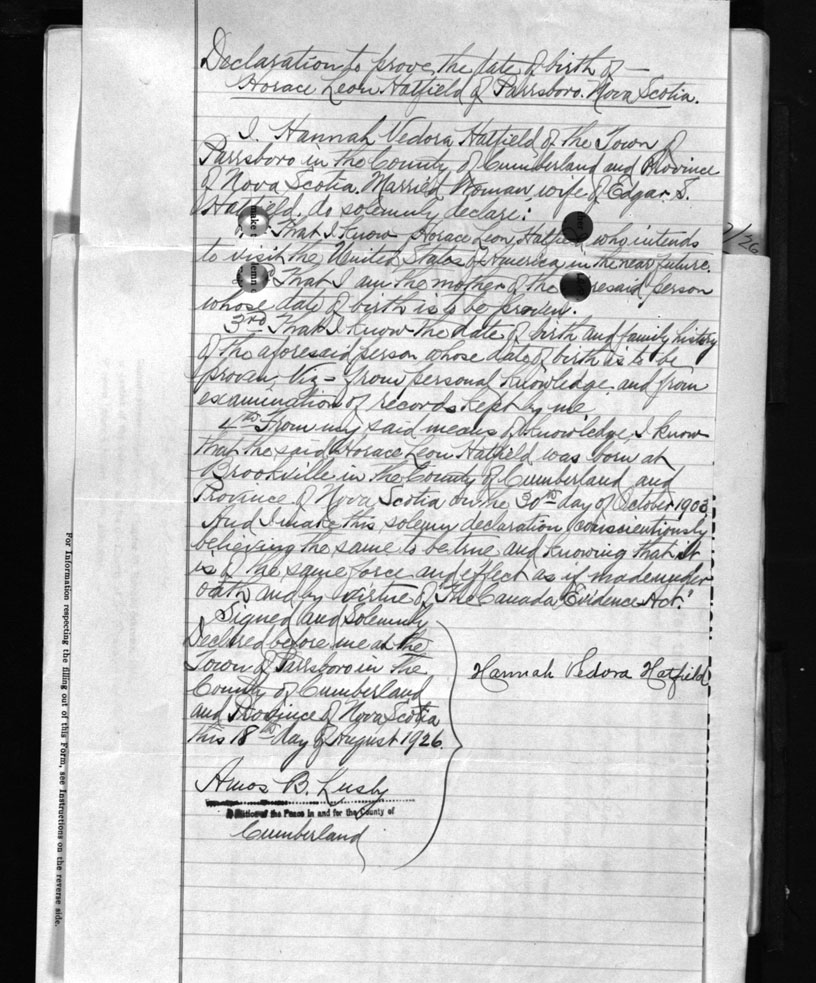 Declaration to prove the date of birth of —
Horace Leon Hatfield of Parrsboro. Nova Scotia.
I. Hannah Vedora Hatfield of the Town of
Parrsboro in the County of Cumberland and Province
of Nova Scotia. Married Woman, wife of Edgar S.
Hatfield. do solemnly declare:
That I know Horace Leon Hatfield who intends
to visit the United States of America in the near future.
That I am the mother of the resaid person
whose date of birth is to be proven.
3rd That I know the date of birth and family history
of the aforesaid person whose date of birth is to be
proven, Viz – from personal knowledge and from
examination of records kept by me.
4th From my said means of knowledge, I know
that the said Horace Leon Hatfield was born at
Brookville in the County of Cumberland and
Province of Nova Scotia on the 30th day of October
And I make this solemn declaration conscientiously
believing the same to be true and knowing that it
is of the same force and effect as if made under
oath and by virtue of "The Canada Evidence Act."
Signed and Solemnly
Declared before me at the
Town of Parrsboro in the
County of Cumberland
and Province of Nova Scotia
this 18th day of August 1926.
Hannah Vedora Hatfield
Amos B. Lusby
Justice of the Peace in and for the County of
Cumberland
make
the
demn
/26
For Information respecting the filling out of this Form, see Instructions on the reverse side.